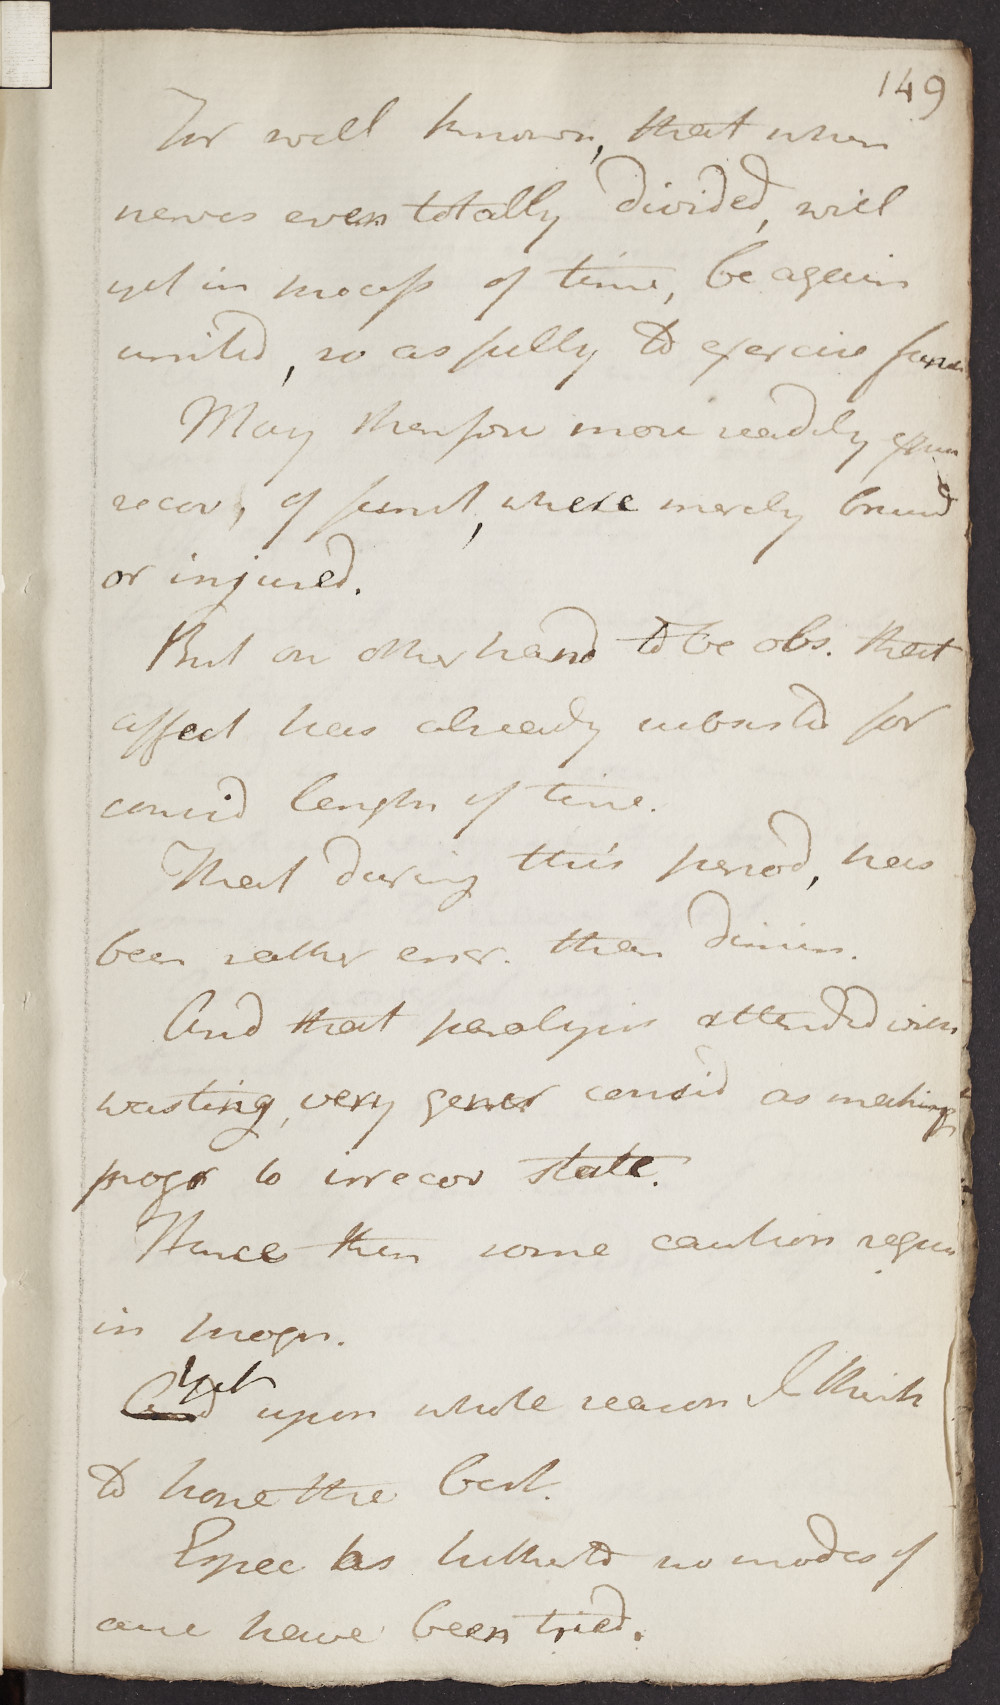 149
For well known, that when
nerves even totally divided, will
yet in process of time, be again
united, so as fully to exercise func
May therefore more readily expec
recov, of funct, where merely bruisd
or injured.
But on other hand to be obs. that
affect has already subsistd for
consid length of time.
That during this period, has
been rather encr. than dimin.
And that paralysis attended with
wasting, very gener consid as making
progr to irrecov state.
Hence then some caution requis
in progn.
Yet
And upon whole reason I think
to hope the best.
Espec as hitherto no modes of
cure have been tried.